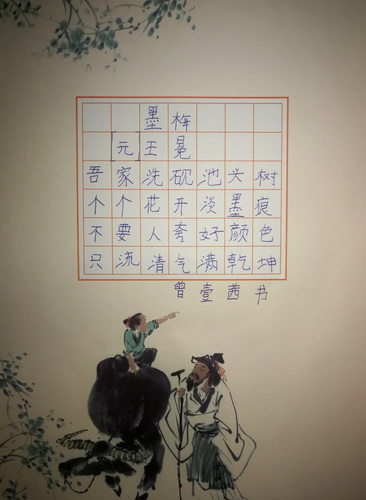 墨梅
[元]王冕
吾家洗砚池头树
个个花开淡墨痕
不要人夸好颜色
只流清气满乾坤
曾壹茜书